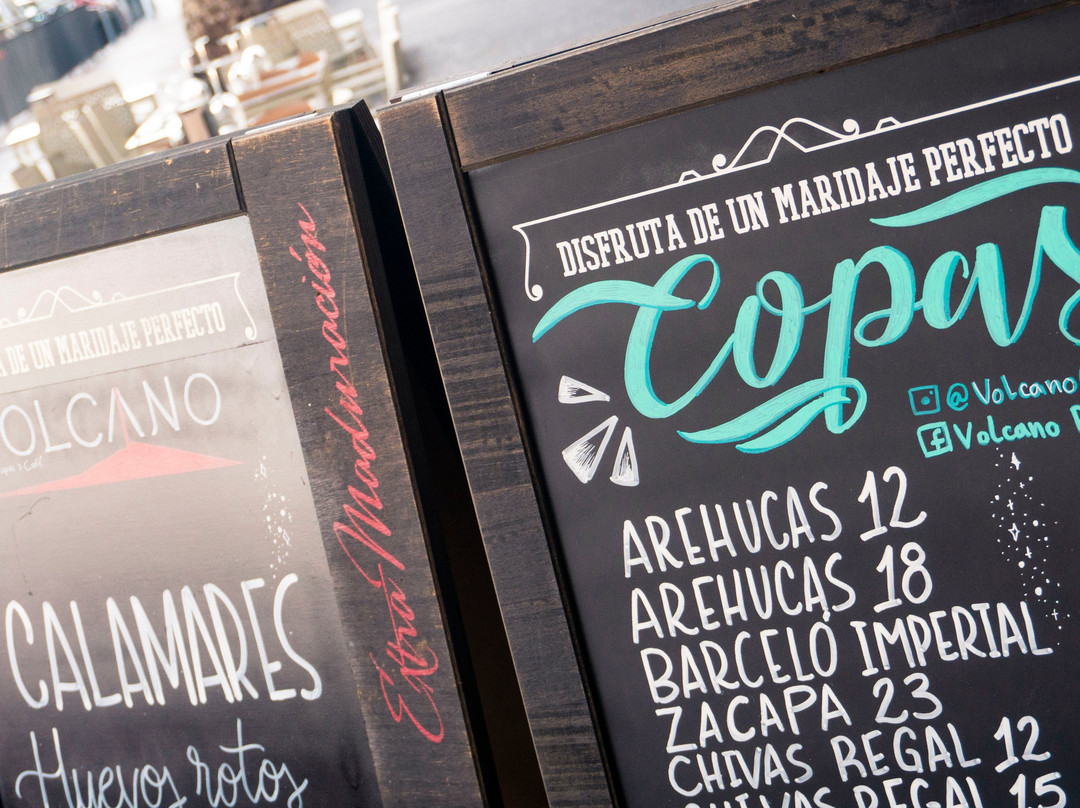 DE UN MARIDAJE PERFECTO
VOLCANO
CALAMARES
Huevos rotos
Extra Maduración
DISFRUTA DE UN MARIDAJE PERFECTO
Copas
@Volcano
Volcano
AREHUCAS 12
AREHUCAS 18
BARCELÓ IMPERIAL
ZACAPA 23
CHIVAS REGAL 12
CHIVAS REGAL 15